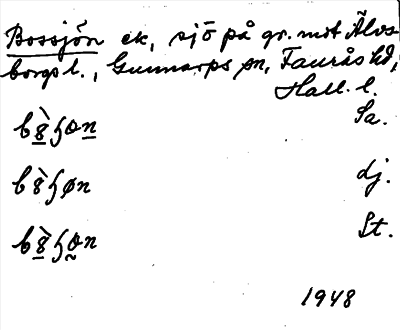 Bossjön ek, sjö på gr. mot Älvs-
borgs l., Gunnarps sn, Faurås hd,
Hall. l.
Sa.
dj.
St.
1948